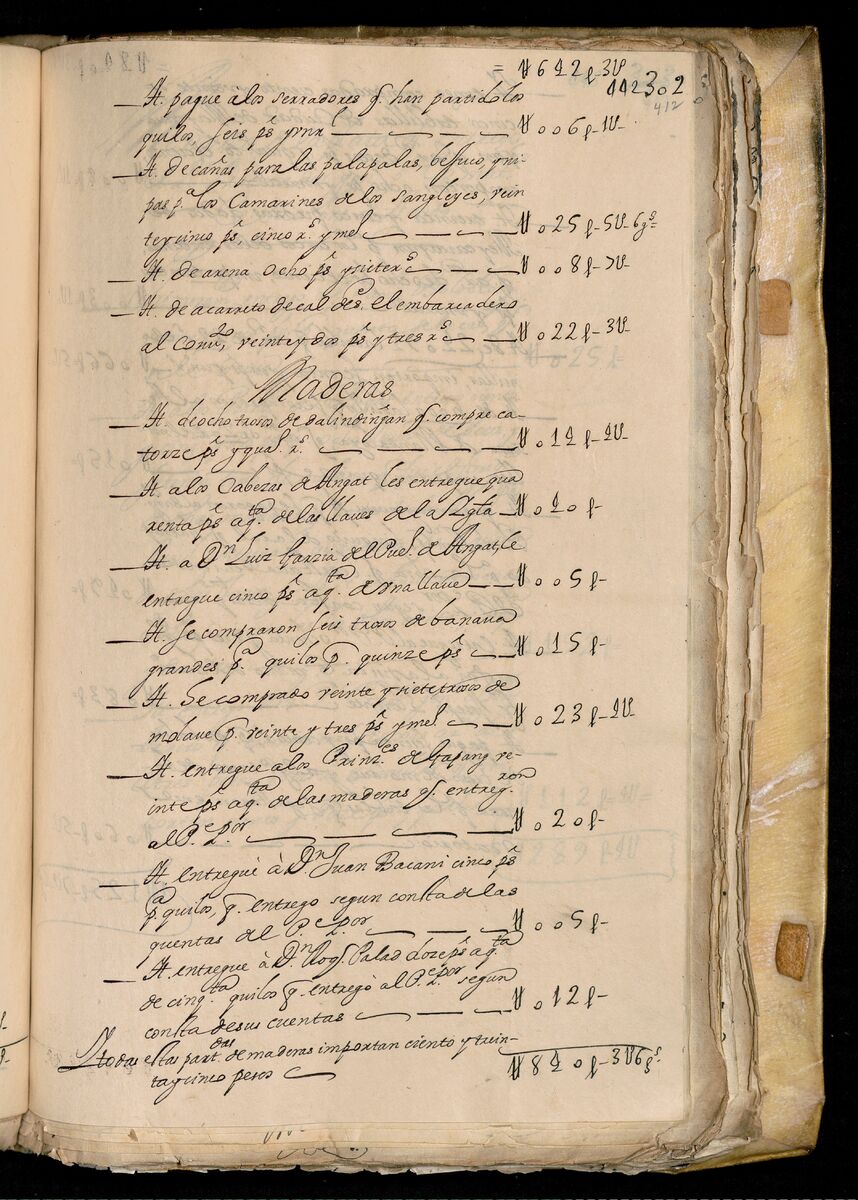 = U642p-3U
112302
412
__It. pague à los serradores q̃. han partido los
quilos, seis pṣ y vn rl —— — — U006p-1U-
__It. de cañas para las palapalas, bejuco, y ni-
pas p.a los Camarines de los sangleyes, vein
te y cinco pṣ, cinco r.s y mel —— — — U025p-5U-6gs=
__It. de arena ocho pṣ y siete r.s —— — — U008p-7U-
__It. de acarreto de cal desc el embarcadero
al Convto, veinte y dos pṣ y tres r.s — — U022p-3U-
Maderas
__It. de ocho trosos de salindinjan q̃. compre ca-
torze pṣ y qual. r.s —— — — — U014p-4U-
__It. a los Cabezas de Angat les entregue qua
renta pṣ a q.ta de las llaves de la Yglã — U040p-
__It. a Dn Luiz Garzia del Puel. de Angat, le
entregue cinco pṣ a q.ta de vna llave — — U005p-
__It. se compraron seis trosos de banava
grandes p.a quilos p. quinze pṣ — — U015p-
__It. Se comprado veinte y siete trosos de
molave p. veinte y tres pṣ y mel — — U023p-4U-
__It. entregue a los Prinz.es de
inte pṣ a q.ta de las maderas q̃. entreg.ron
al P.e Por —— — — — U020p-
__It. entreguè à Dn Juan Bacani cinco pṣ
p.a quilos, q̃. entrego segun consta de las
quentas de el P.e Por —— — — U005p-
__It. entreguè à Dn Rog.s Palad doze pṣ a q.ta
de cinq.ta quilos q̃. entregò al P.e Por segun
consta de sus cuentas —— — — U012p-
Y todas estas part.das de maderas importan ciento y trein-
ta y cinco pesos —— U840p-3U6gs